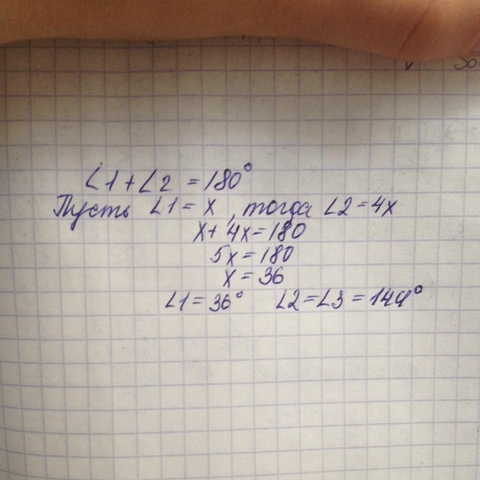 ∠1+∠2 = 180°
Пусть ∠1 = x, тогда ∠2 = 4x
x + 4x = 180
5x = 180
x = 36
∠1 = 36° ∠2 = ∠3 = 144°